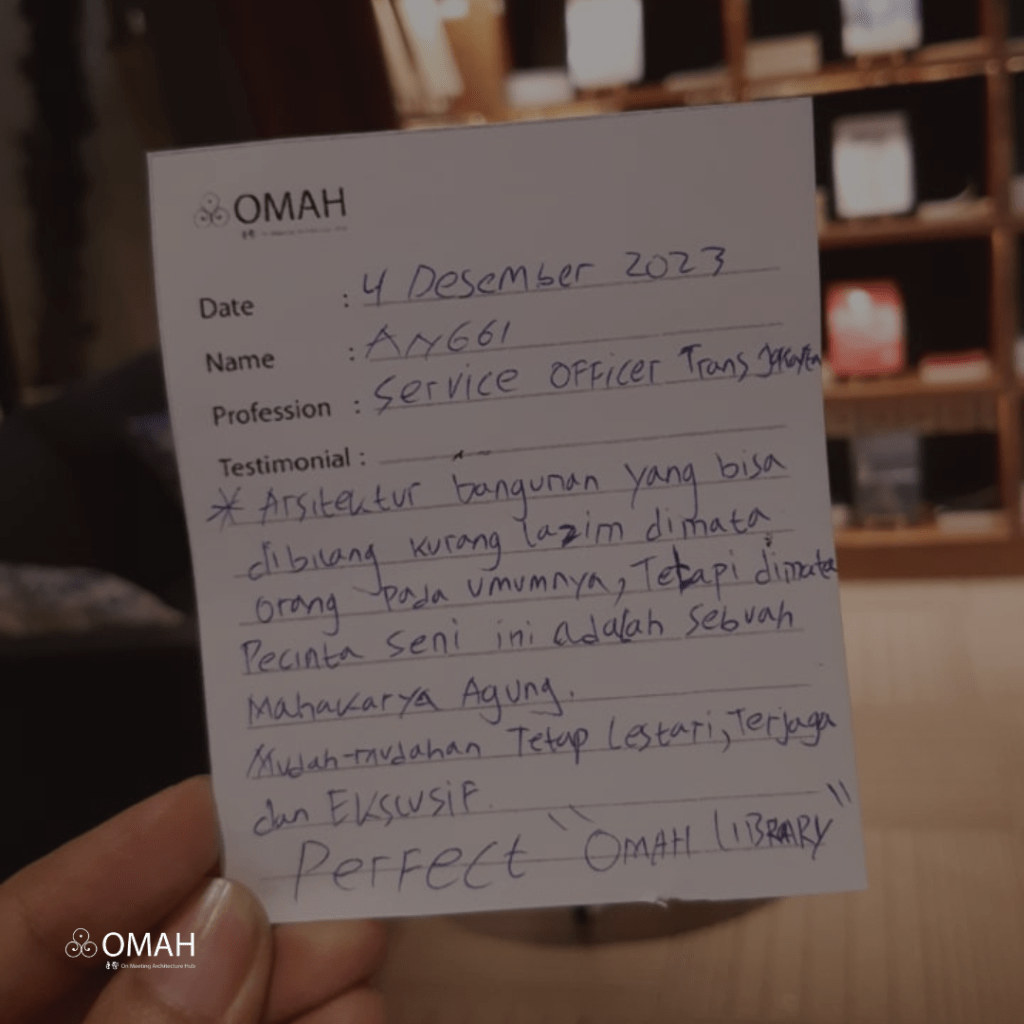 OMAH
Date : 4 Desember 2023
Name : ANGGI
Profession : Service Officer Trans Jakarta
Testimonial :
* Arsitektur bangunan yang bisa
dibilang kurang lazim dimata
orang pada umumnya, Tetapi dimata
Pecinta seni ini adalah sebuah
Mahakarya Agung.
Mudah-mudahan Tetap Lestari, Terjaga
dan Ekslusif.
Perfect "OMAH LIBRARY"
OMAH
On Meeting Architecture Hub